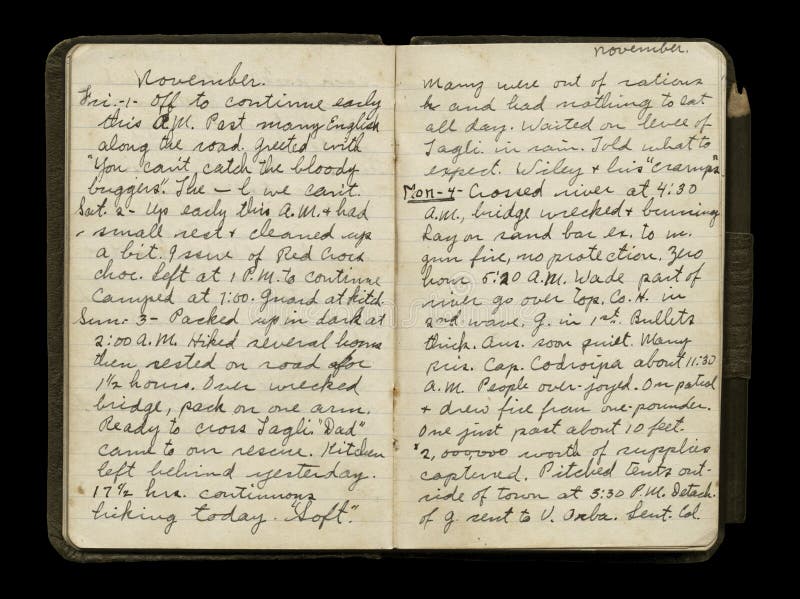 November.
Fri.-1- Off to continue early
this A.M. Past many English
along the road. greeted with
"You can't catch the bloody
buggers". The — l we can't.
Sat. 2- Up early this A.M. + had
small rest + cleaned up
a bit. Issue of Red Cross
choc. Left at 1 P.M. to continue
Camped at 7:00. Guard at kitch.
Sun: 3- Packed up in dark at
2:00 A.M. Hiked several hours
then rested on road for
1 1/2 hours. Over wrecked
bridge, pack on one arm.
Ready to cross Tagli. "Dad"
came to our rescue. Kitchen
left behind yesterday.
17 1/2 hrs. continuous
hiking today. "Soft".
november.
Many were out of rations
and had nothing to eat
all day. Waited on levee of
Tagli. in rain. Told what to
expect. Wiley + his "cramps"
Mon-4- Crossed river at 4:30
A.M., bridge wrecked + burning
Lay on sand bar ex. to m.
gun fire, no protection. Zero
hour 5:20 A.M. Wade part of
river go over top, Co. H. in
2nd wave, G. in 1st. Bullets
thick. Aus. soon quiet. Many
pris. Cap. Codroipa about 11:30
A.M. People over-joyed. On patrol
+ drew fire from one-pounder.
One just past about 10 feet.
$2,000,000 worth of supplies
captured. Pitched tents out-
side of town at 3:30 P.M. Detach.
of G sent to V. Orba. Sent. Col.
dreamstime